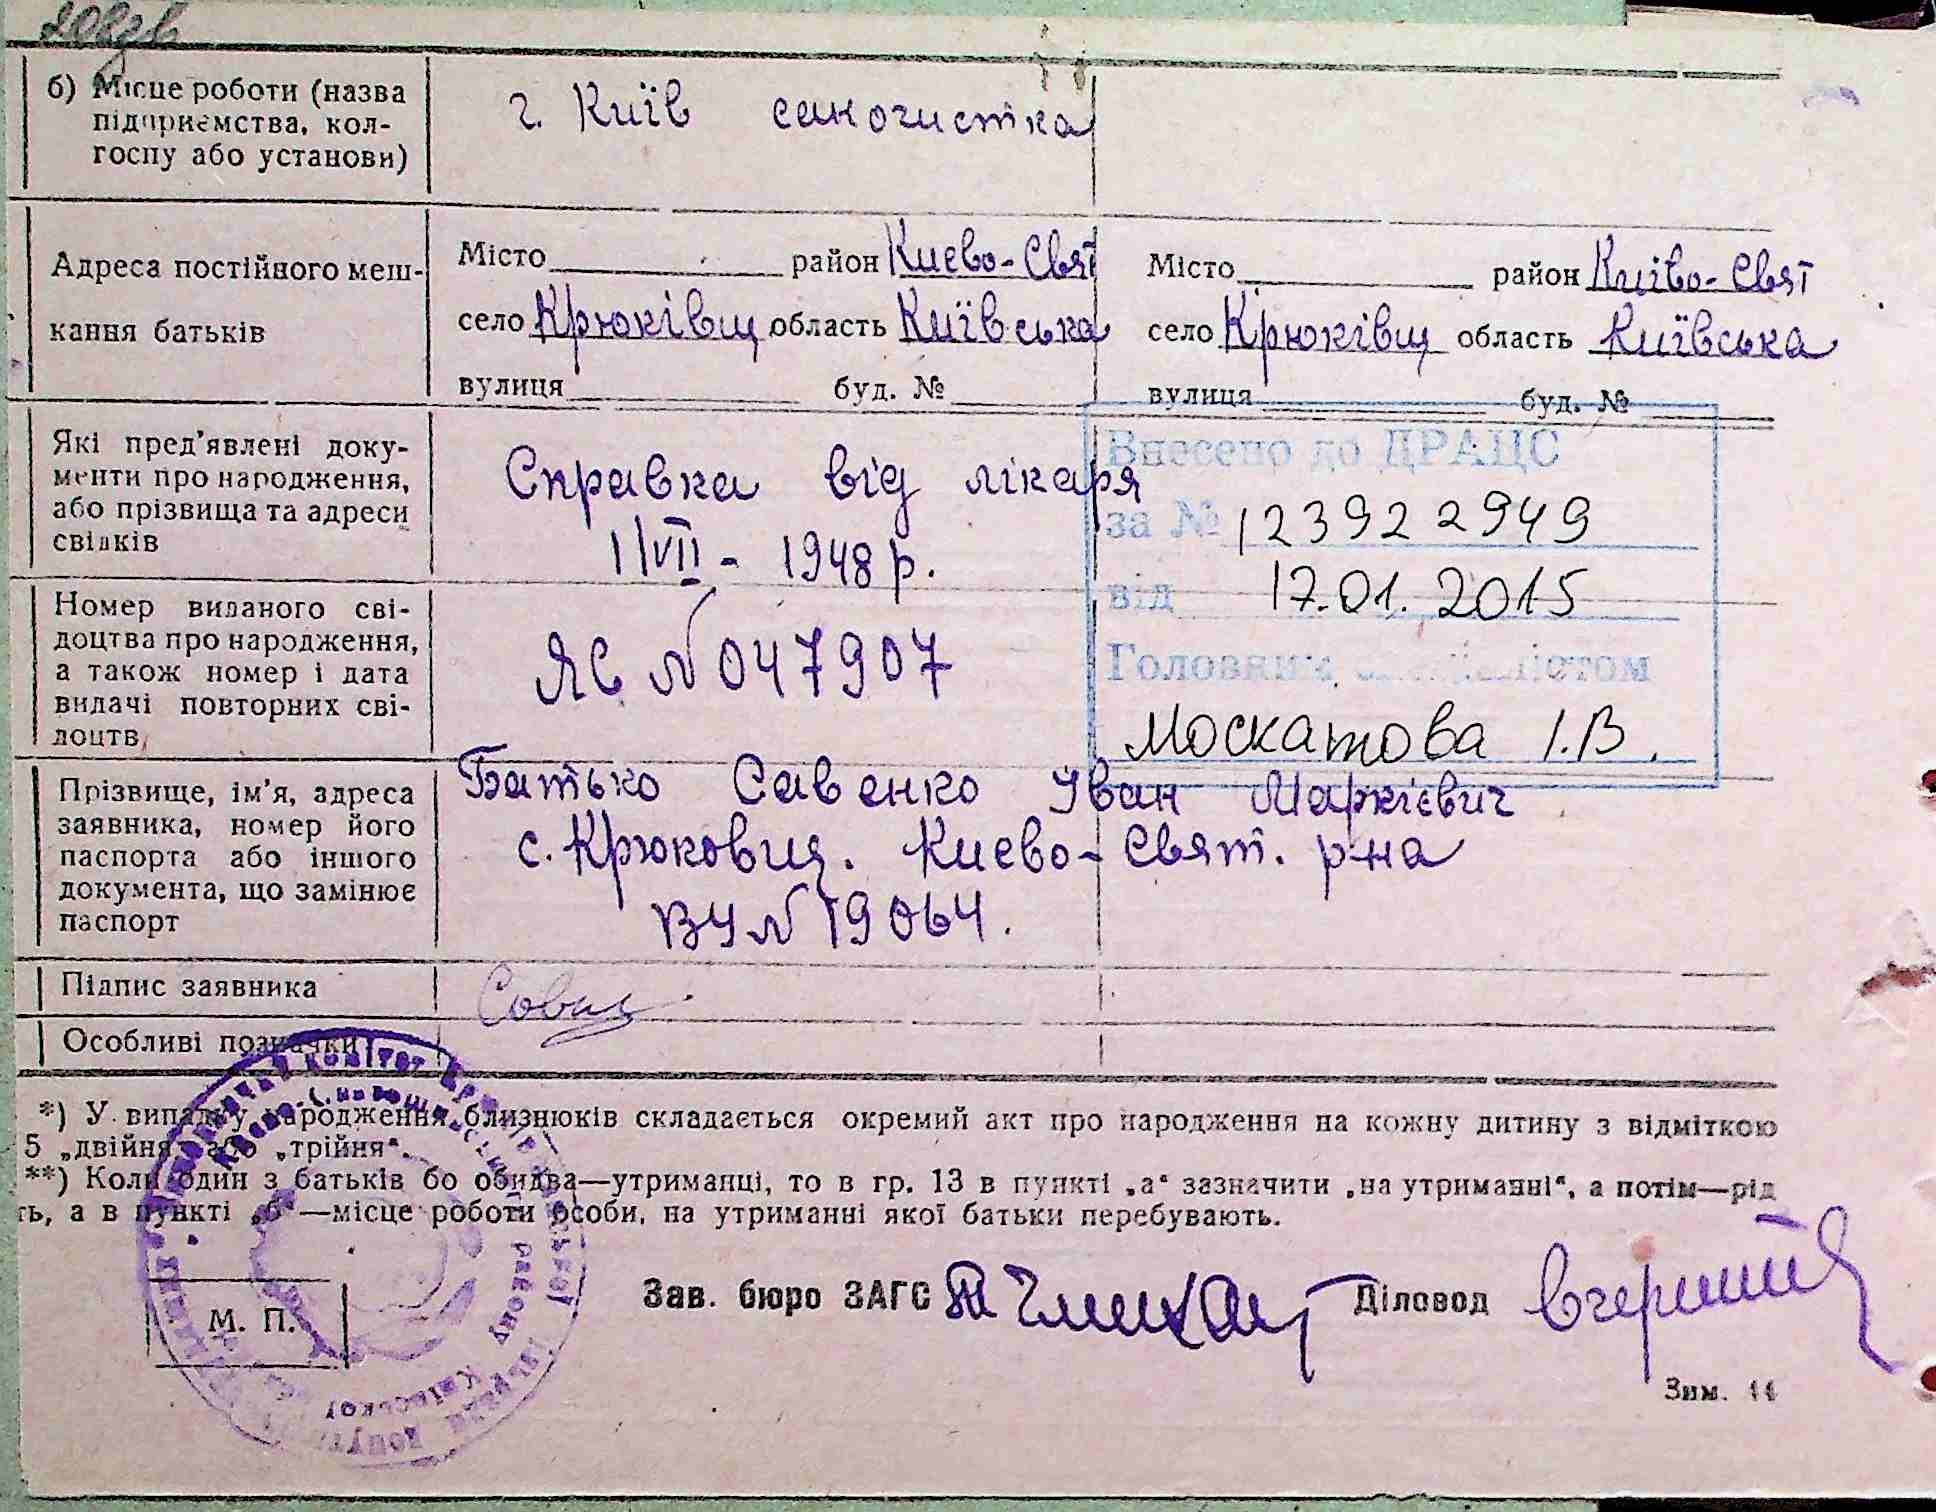 б) Місце роботи (назва
підприємства, кол-
госпу або установи)
г. Київ саночистка
Адреса постійного меш-
кання батьків
Місто район Києво-Свят
село Крюківщ область Київська
вулиця буд. №
Місто район Київо-Свят
село Крюківщ область Київська
вулиця буд. №
Які пред'явлені доку-
менти про народження,
або прізвища та адреси
свідків
Справка від лікаря
1/VII - 1948 р.
Внесено до ДРАЦС
за № 123922949
від 17.01.2015
Головним спеціалістом
Москатова І.В.
Номер виданого сві-
доцтва про народження,
а також номер і дата
видачі повторних сві-
доцтв
ЯС № 047907
Прізвище, ім'я, адреса
заявника, номер його
паспорта або іншого
документа, що замінює
паспорт
Батько Савенко Іван Маркієвич
с. Крюковщ. Києво-Свят. р-на
ВЧ № 19064.
Підпис заявника
Особливі позначки
*) У випадку народження близнюків складається окремий акт про народження на кожну дитину з відміткою
5 „двійня" або „трійня".
**) Коли один з батьків бо обидва—утриманці, то в гр. 13 в пункті „а" зазначити „на утриманні", а потім—рід
ть, а в пункті „б"—місце роботи особи, на утриманні якої батьки перебувають.
М. П.
Зав. бюро ЗАГС
Діловод
Зим. 44